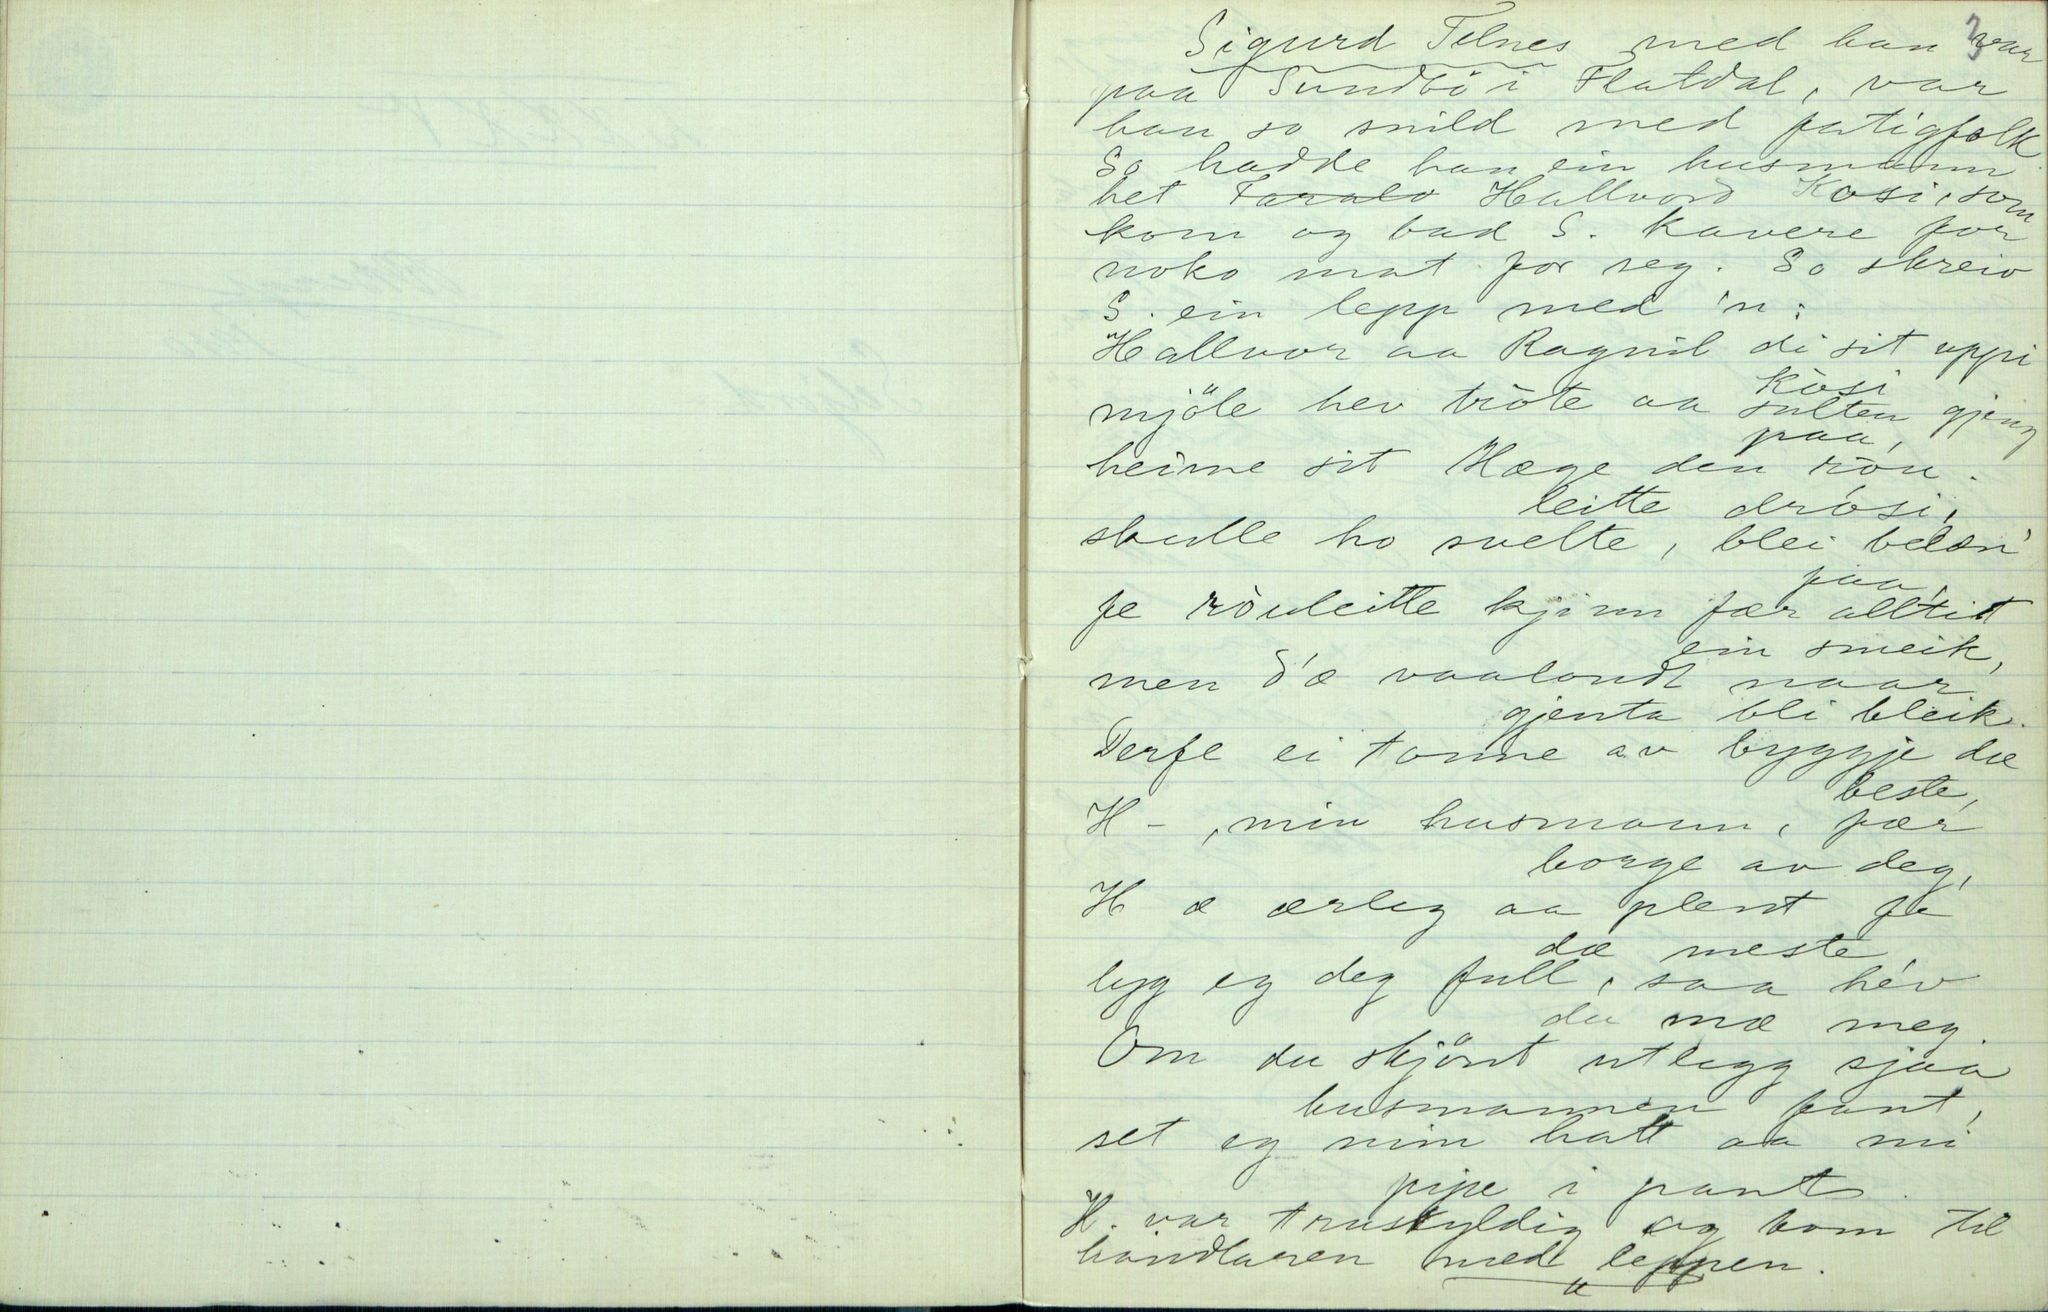 3
Sigurd Telnes med han var
paa Sundbö i Flatdal, var
han so snild med fatigfolk
So hadde han ein husmann
het Tarald Hallvord Kosi, som
kom og bad S. kavere for
noko mat for seg. So skreiv
S. ein lepp med 'n:
Hallvor aa Ragnil di sit uppi
Kòsi
mjöle hev tròte aa sulten gjeng
paa,
heime sit Hæge den ròu
leitte dròsi,
skulle ho svelte, blei
paa,
fe ròuleitte kjinn fær alltit
ein smeik,
men d'æ vaalondt naar
gjenta bli bleik.
Derfe ei tonne av byggje dæ
beste,
H - , min husmann, fær
borge av deg,
H æ ærleg aa plent fe
dæ meste
lyg eg deg full, saa hév
du mæ meg
Om du skjönt utlegg sjaa
husmannen fant,
set eg min hatt aa mi
pipe i pant.
H. var truskyldig og kom til
handlaren med leppen.